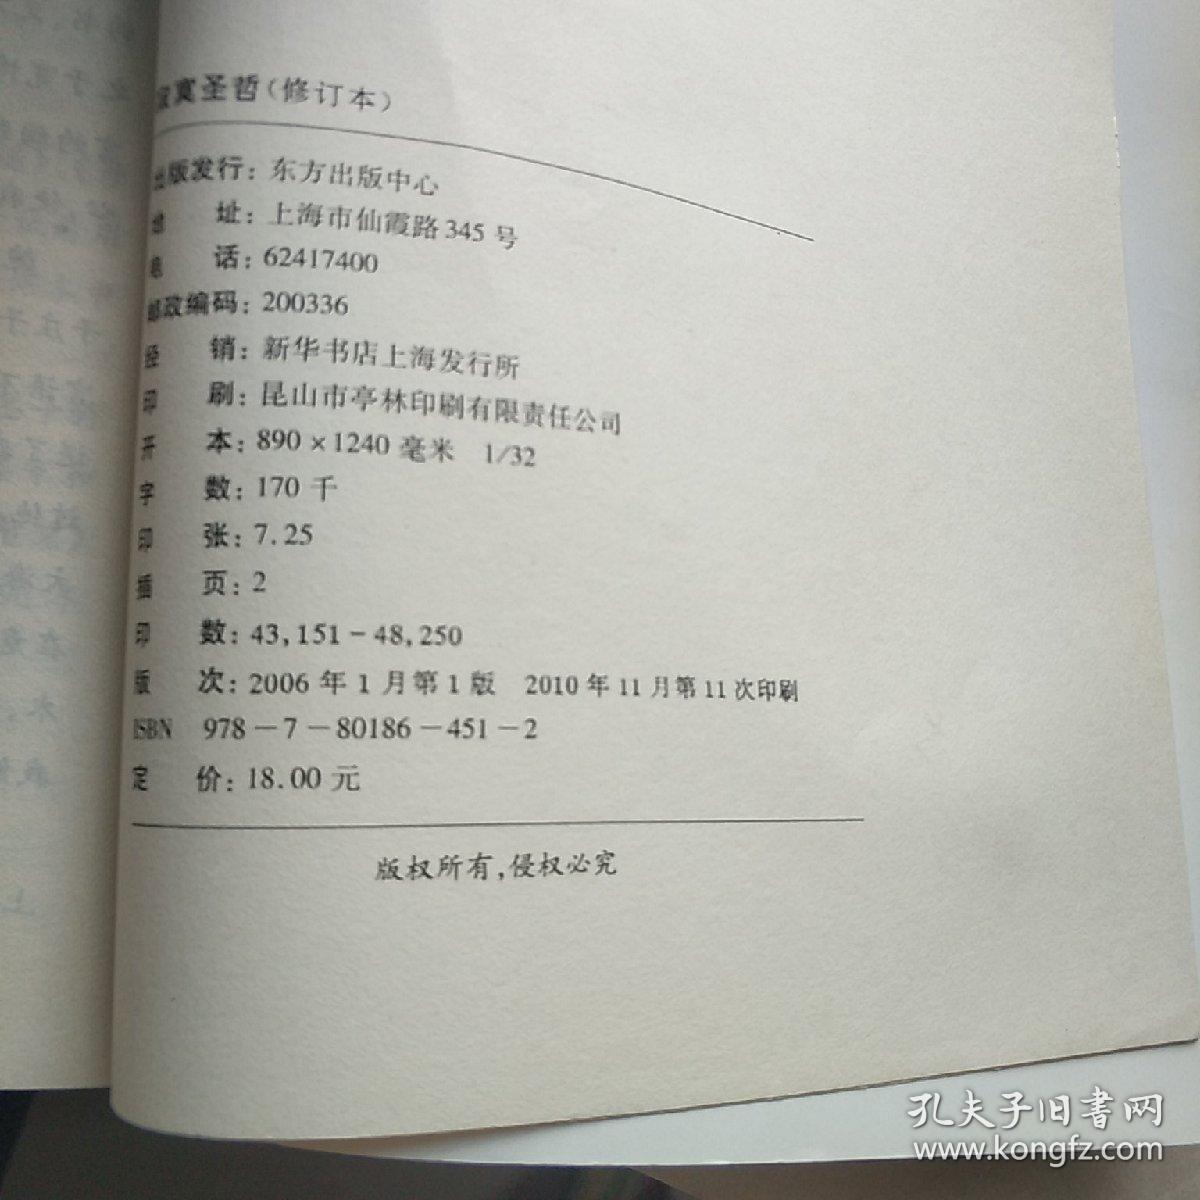 寂寞圣哲(修订本)
出版发行:东方出版中心
地 址:上海市仙霞路345号
电 话:62417400
邮政编码:200336
经 销:新华书店上海发行所
印 刷:昆山市亭林印刷有限责任公司
开 本:890×1240毫米 1/32
字 数:170千
印 张:7.25
插 页:2
印 数:43,151-48,250
版 次:2006年1月第1版 2010年11月第11次印刷
ISBN 978-7-80186-451-2
定 价:18.00元
版权所有,侵权必究
孔夫子旧书网
www.kongfz.com